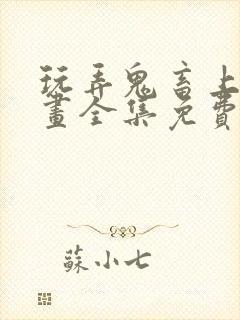 玩弄鬼畜上
畫全集免費
蘇小七